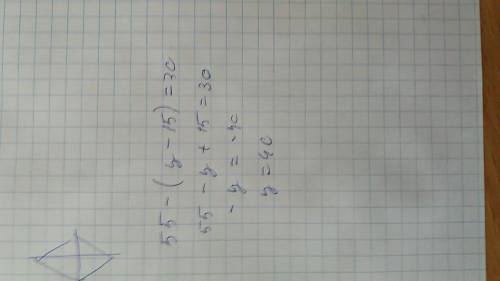 55 - (y - 15) = 30
55 - y + 15 = 30
- y = - 40
y = 40